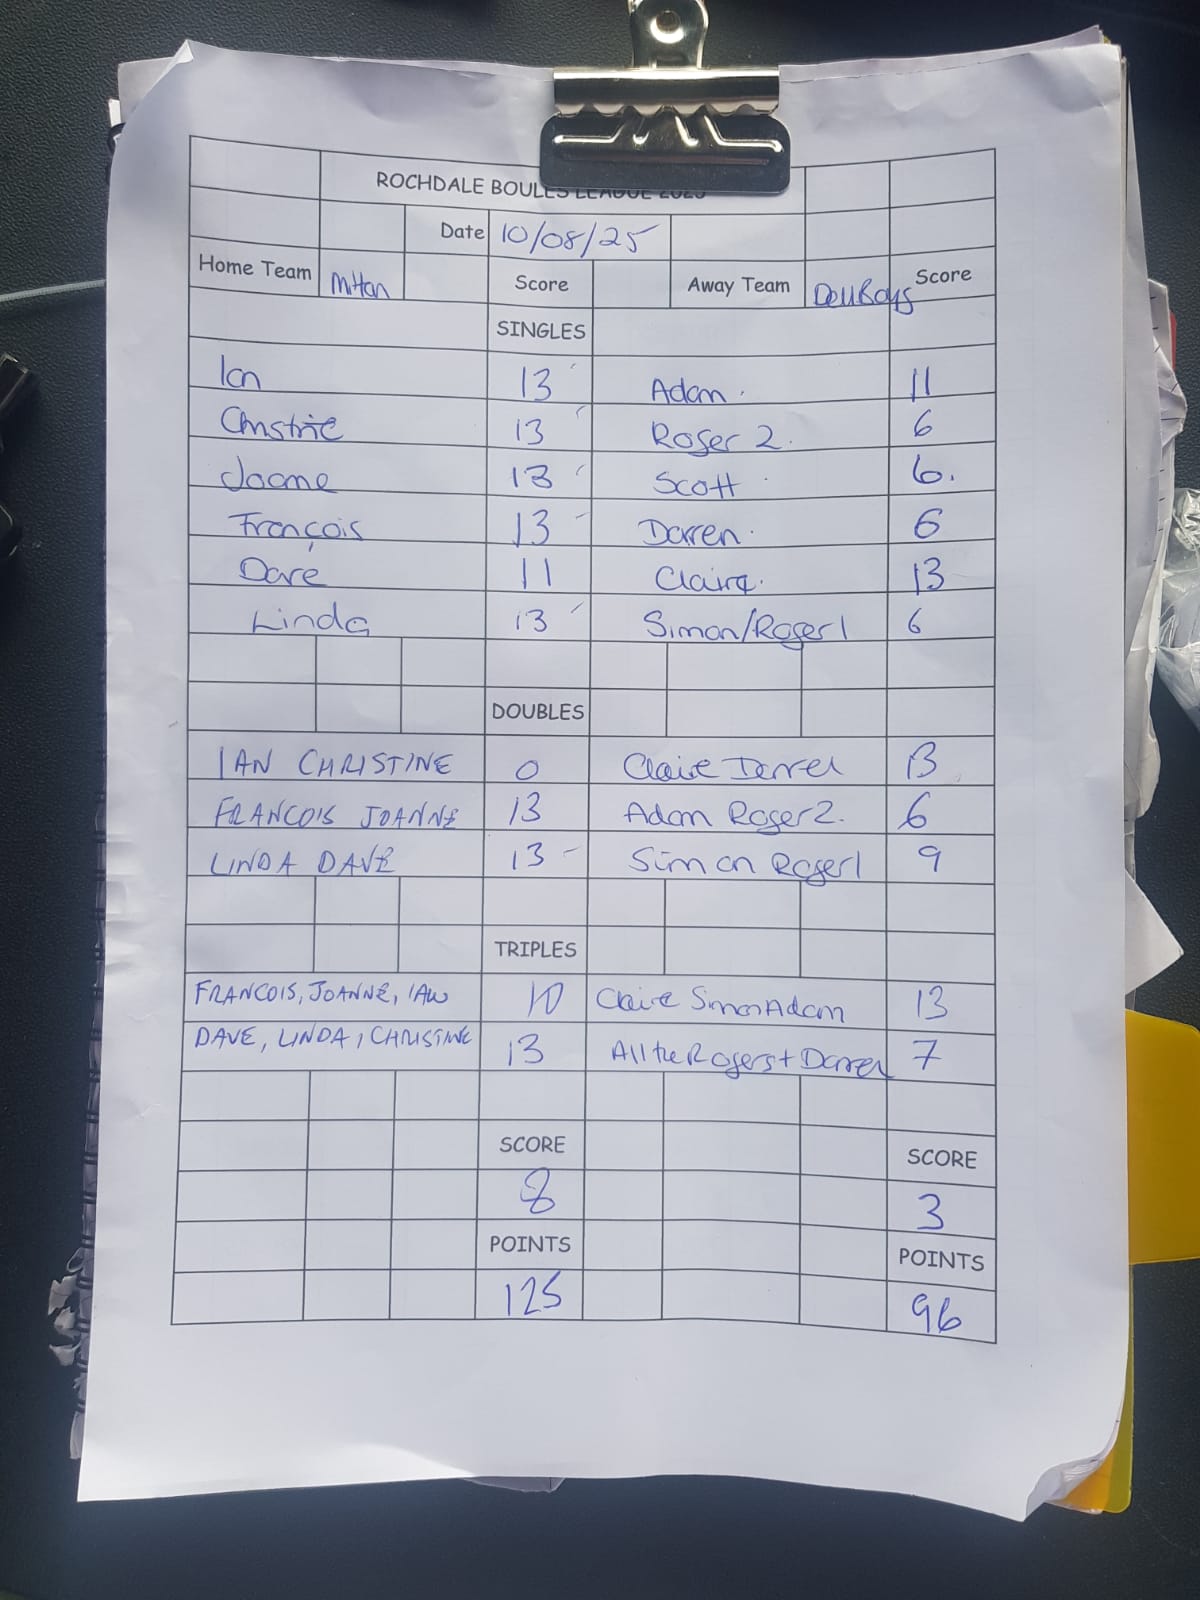 ROCHDALE BOULES LEAGUE 2025
Date 10/08/25
Home Team Mittan Score Away Team DellBoys Score
SINGLES
Ian 13 Adam 11
Christine 13 Roger 2. 6
Joanne 13 Scott 6.
François 13 Darren 6
Dave 11 Claire 13
Linda 13 Simon/Roger 1 6
DOUBLES
IAN CHRISTINE 0 Claire Darren 13
FRANCOIS JOANNE 13 Adam Roger 2. 6
LINDA DAVE 13 Simon Roger 1 9
TRIPLES
FRANCOIS, JOANNE, IAN 10 Claire Simon Adam 13
DAVE, LINDA, CHRISTINE 13 All the Rogers + Darren 7
SCORE SCORE
8 3
POINTS POINTS
125 96